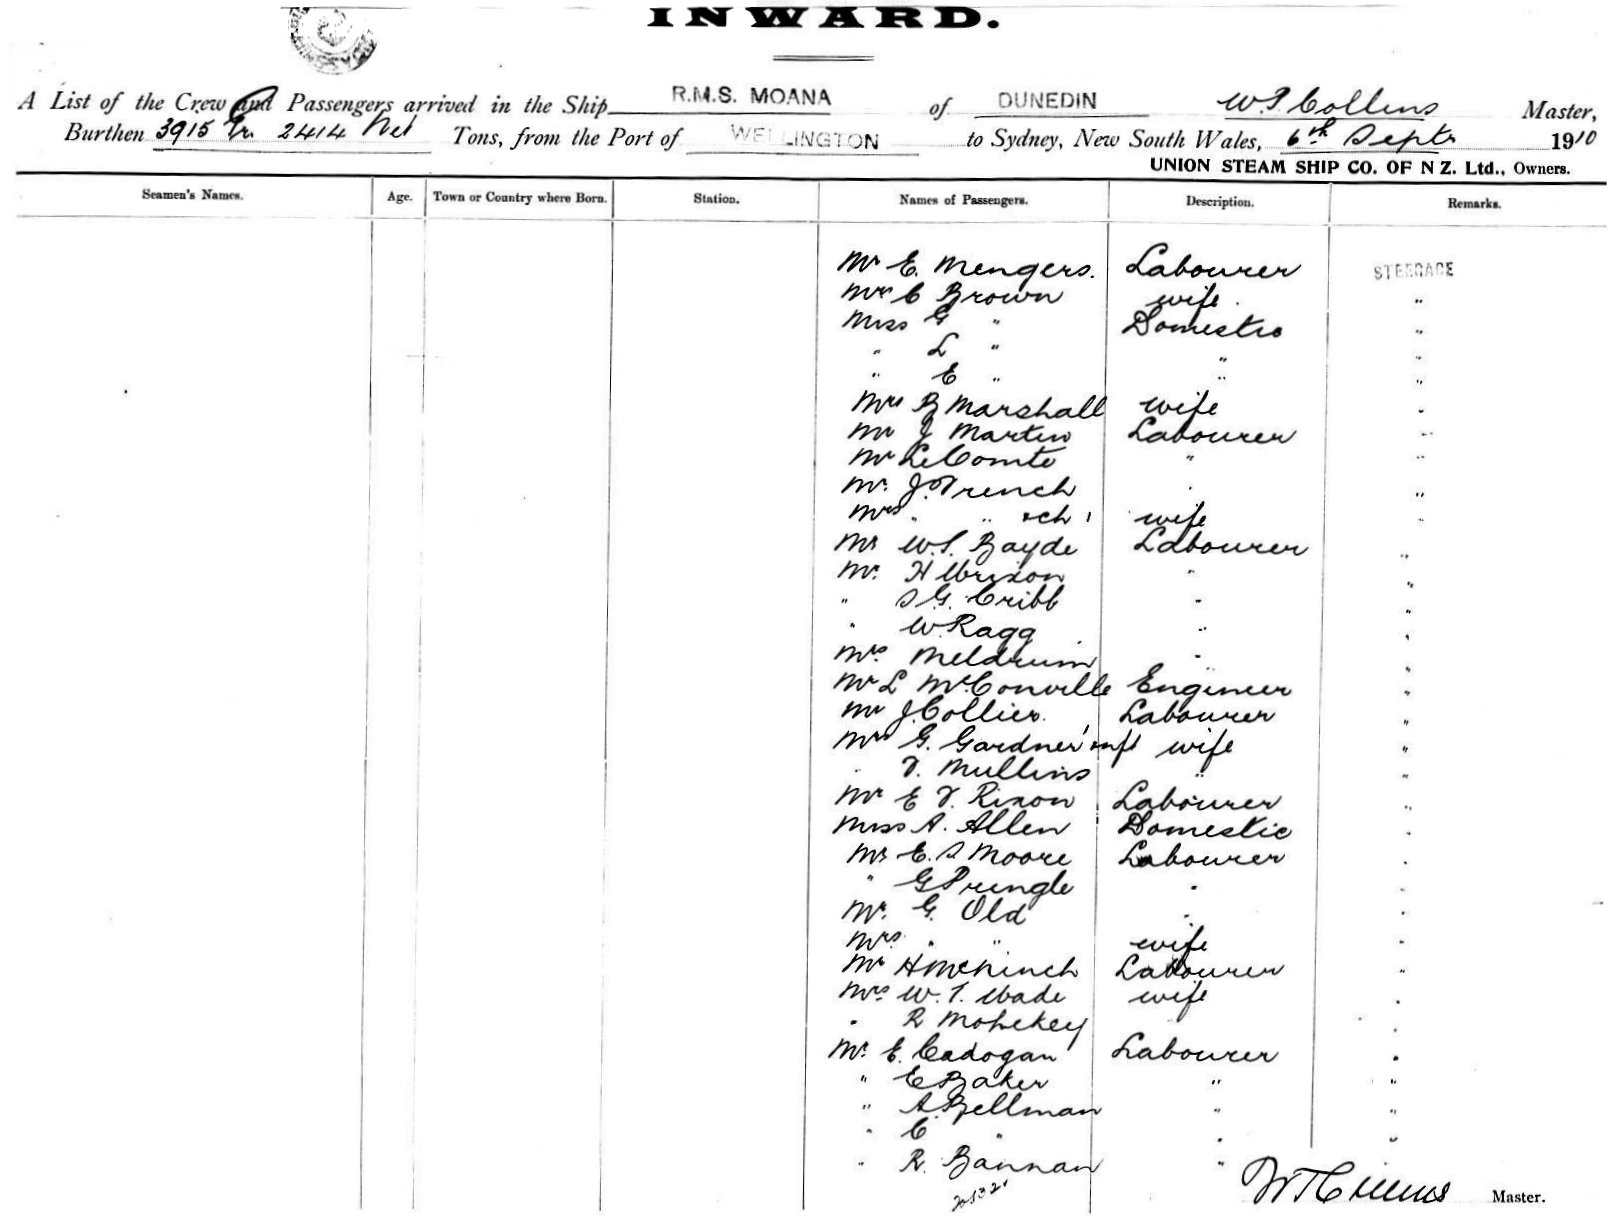 INWARD.
A List of the Crew and Passengers arrived in the Ship R.M.S. MOANA of DUNEDIN W.T. Collins Master,
Burthen 3915 Gr. 2414 Net Tons, from the Port of WELLINGTON to Sydney, New South Wales, 6th Septr 1910
UNION STEAM SHIP CO. OF N Z. Ltd., Owners.
Seamen's Names. Age. Town or Country where Born. Station. Names of Passengers. Description. Remarks.
Mr E. Mengers. Labourer STEERAGE
Mrs C Brown wife "
Miss G " Domestic "
" L " " "
" E " " "
Mrs B Marshall wife "
Mr J Martin Labourer "
Mr Le Comte " "
Mr. J. French " "
Mrs " " + ch wife "
Mr W.S. Bayde Labourer "
Mr. H Wrixon " "
" S G. Cribb " "
" W. Ragg " "
Mrs Meldrum " "
Mr L McConville Engineer "
Mr J. Collier. Labourer "
Mrs G. Gardner + inft wife "
" F. Mullins " "
Mr E F. Rixon Labourer "
Miss A. Allen Domestic "
Mr E. S Moore Labourer "
" G Pringle " "
Mr. G. Old " "
Mrs " " wife "
Mr H McKinch Labourer "
Mrs W. T. Wade wife "
" R "
Mr. E. Cadogan Labourer "
" E Baker " "
" A. Bellman " "
" C " " "
" R. Bannan "
Master.